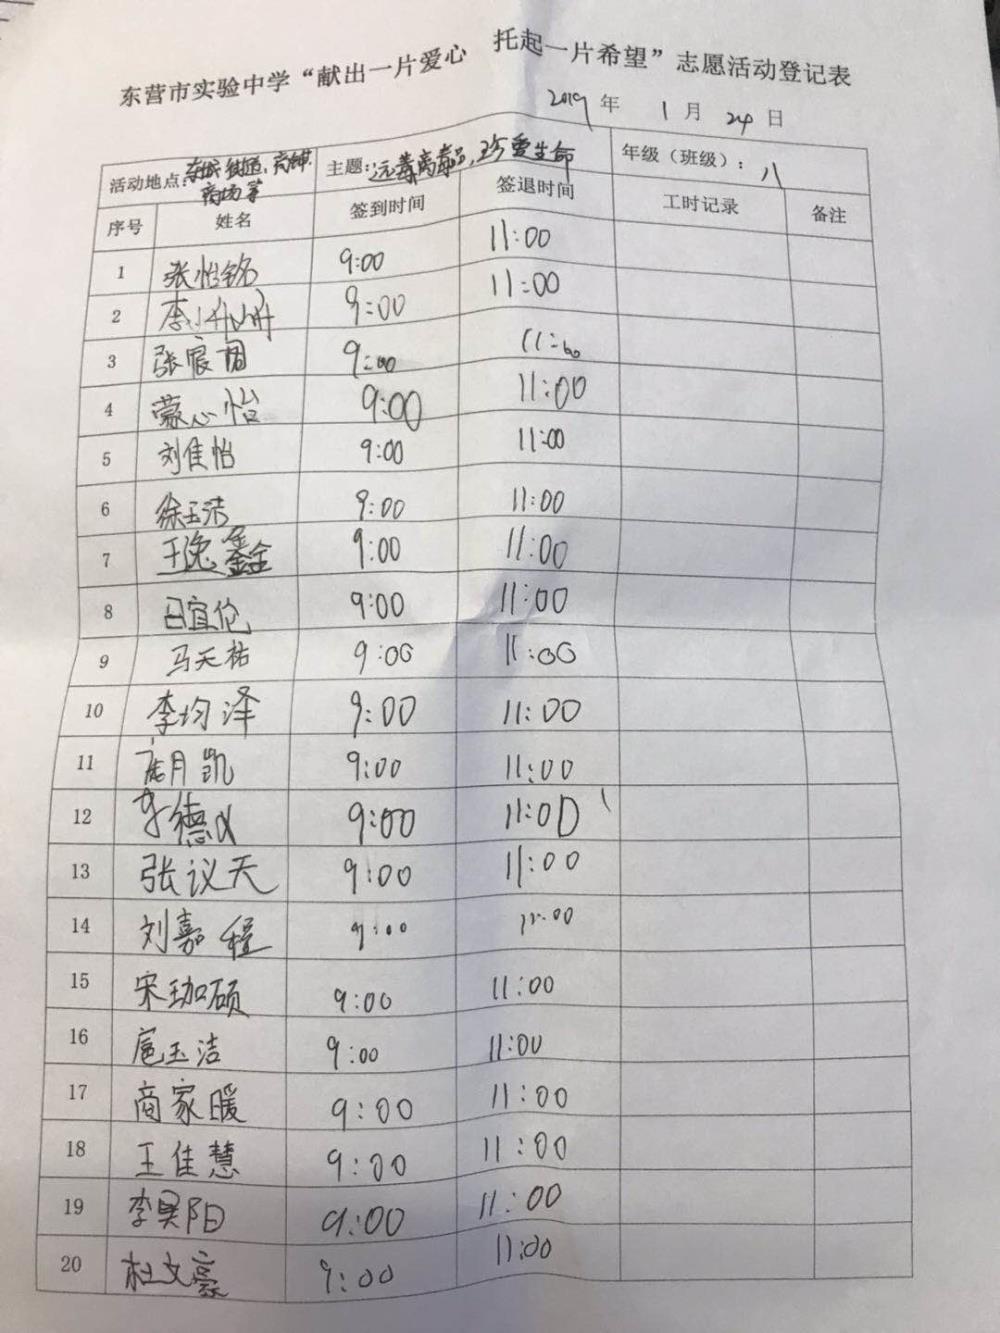 东营市实验中学“献出一片爱心 托起一片希望”志愿活动登记表
2019 年 1 月 24 日
活动地点: 商场等 主题: 远毒离毒品,珍爱生命 年级（班级）: 八
序号 姓名 签到时间 签退时间 工时记录 备注
1 张怡铭 9:00 11:00
2 李 9:00 11:00
3 张宸 9:00 11:00
4 蒙心怡 9:00 11:00
5 刘佳怡 9:00 11:00
6 徐玉洁 9:00 11:00
7 王逸鑫 9:00 11:00
8 田宜伦 9:00 11:00
9 马天祐 9:00 11:00
10 李均泽 9:00 11:00
11 月凯 9:00 11:00
12 李德 9:00 11:00
13 张议天 9:00 11:00
14 刘嘉程 9:00 11:00
15 宋珈硕 9:00 11:00
16 扈玉洁 9:00 11:00
17 商家暖 9:00 11:00
18 王佳慧 9:00 11:00
19 李昊阳 9:00 11:00
20 杜文豪 9:00 11:00